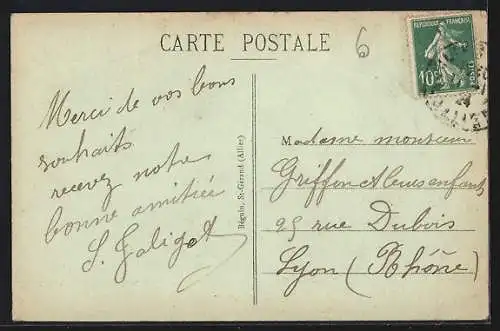 CARTE POSTALE
6
REPUBLIQUE FRANÇAISE
10c
POSTES
24
Merci de vos bons
souhaits
recevez notre
bonne amitiée
S. Galigot
Béguin, St-Gérand (Allier)
Madame monsieur
Griffon et leurs enfants
25 rue Dubois
Lyon (Rhône)